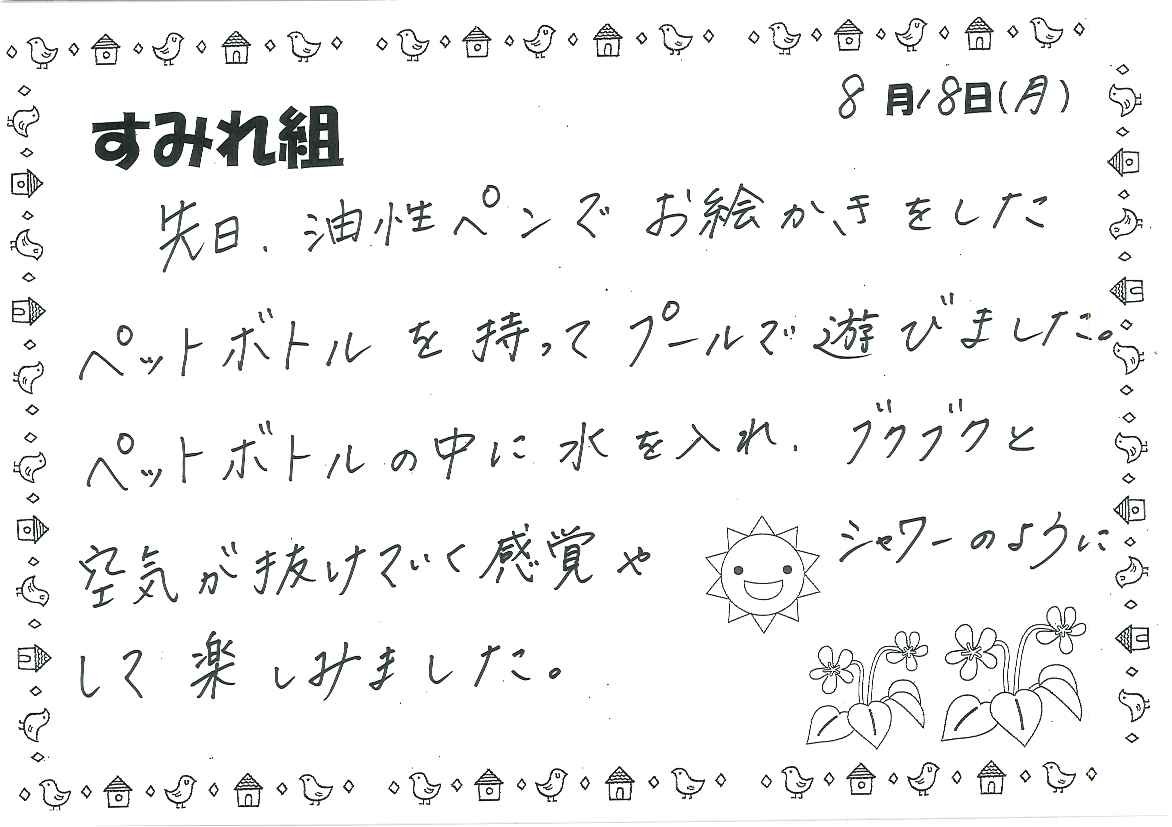 8月18日(月)
すみれ組
先日、油性ペンでお絵かきをした
ペットボトルを持ってプールで遊びました。
ペットボトルの中に水を入れ、ブクブクと
空気が抜けていく感覚や シャワーのように
して楽しみました。